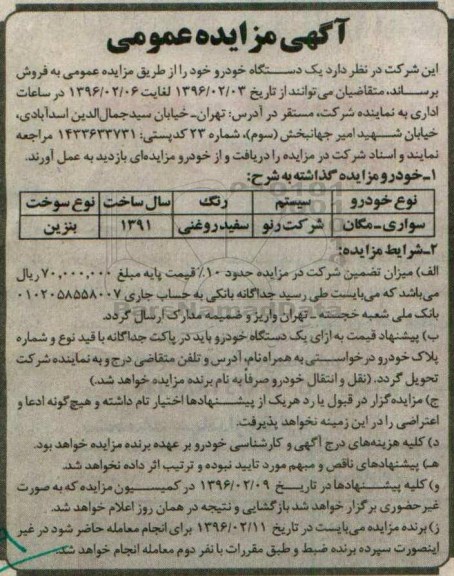 آگهی مزایده عمومی
این شرکت در نظر دارد یک دستگاه خودرو خود را از طریق مزایده عمومی به فروش
برساند، متقاضیان می‌توانند از تاریخ ۱۳۹۶/۰۲/۰۳ لغایت ۱۳۹۶/۰۲/۰۶ در ساعات
اداری به نماینده شرکت، مستقر در آدرس: تهران-خیابان سیدجمال‌الدین اسدآبادی،
خیابان شهید امیر جهانبخش (سوم)، شماره ۲۳ کدپستی: ۱۴۳۳۶۳۳۷۳۱ مراجعه
نمایند و اسناد شرکت در مزایده را دریافت و از خودرو مزایده‌ای بازدید به عمل آورند.
۱-خودرو مزایده گذاشته به شرح:
نوع خودرو سیستم رنگ سال ساخت نوع سوخت
سواری-مگان شرکت رنو سفید روغنی ۱۳۹۱ بنزین
۲-شرایط مزایده:
الف) میزان تضمین شرکت در مزایده حدود ۱۰٪ قیمت پایه مبلغ ۷۰,۰۰۰,۰۰۰ ریال
می‌باشد که می‌بایست طی رسید جداگانه بانکی به حساب جاری ۰۱۰۲۰۵۸۵۵۸۰۰۷
بانک ملی شعبه خجسته - تهران واریز و ضمیمه مدارک ارسال گردد.
ب) پیشنهاد قیمت به ازای یک دستگاه خودرو باید در پاکت جداگانه با قید نوع و شماره
پلاک خودرو درخواستی به همراه نام، آدرس و تلفن متقاضی درج و به نماینده شرکت
تحویل گردد. (نقل و انتقال خودرو صرفاً به نام برنده مزایده خواهد شد.)
ج) مزایده‌گزار در قبول یا رد هریک از پیشنهادها اختیار تام داشته و هیچ‌گونه ادعا و
اعتراضی را در این زمینه نخواهد پذیرفت.
د) کلیه هزینه‌های درج آگهی و کارشناسی خودرو بر عهده برنده مزایده خواهد بود.
هـ) پیشنهادهای ناقص و مبهم مورد تایید نبوده و ترتیب اثر داده نخواهد شد.
و) کلیه پیشنهادها در تاریخ ۱۳۹۶/۰۲/۰۹ در کمیسیون مزایده که به صورت
غیرحضوری برگزار خواهد شد بازگشایی و نتیجه در همان روز اعلام خواهد شد.
ز) برنده مزایده می‌بایست در تاریخ ۱۳۹۶/۰۲/۱۱ برای انجام معامله حاضر شود در غیر
اینصورت سپرده برنده ضبط و طبق مقررات با نفر دوم معامله انجام خواهد شد.